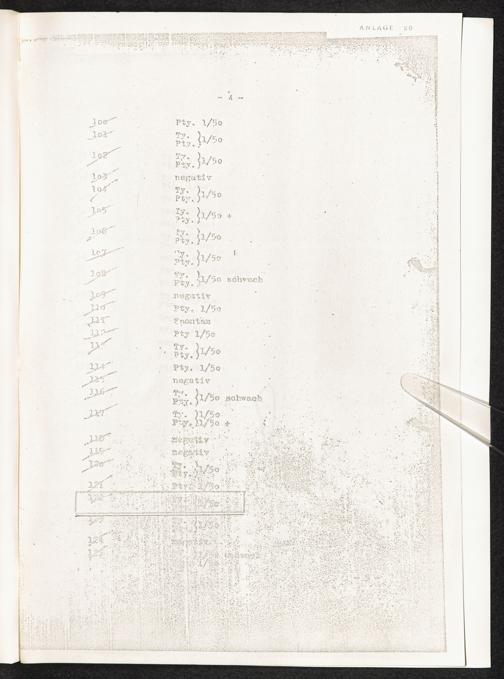 ANLAGE 20
- 4 -
100 Pty. 1/50
101 Ty. }1/50
Pty.
102 Ty. }1/50
Pty.
103 negativ
104 Ty. }1/50
Pty.
105 Ty. }1/50 +
Pty.
106 Ty. }1/50
Pty.
107 Ty. }1/50
Pty.
108 Ty. }1/50 schwach
Pty.
109 negativ
110 Pty. 1/50
111 Spontan
112 Pty 1/50
113 Ty. }1/50
Pty.
114 Pty. 1/50
115 negativ
116 Ty. }1/50 schwach
Pty.
117 Ty. }1/50
Pty. }1/50 +
118 negativ
119 negativ
120 Ty. }1/50
Pty.
121 Pty 1/50
122 Ty. 1/50
123 1/50
124 negativ
125 1/50
1/50